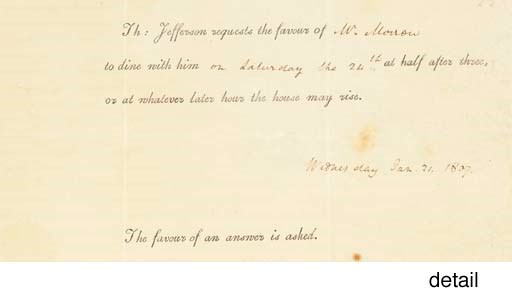 Th: Jefferson requests the favour of Mr. Morrow
to dine with him on Saturday the 24th. at half after three,
or at whatever later hour the house may rise.
Wednesday Jan. 21. 1807.
The favour of an answer is asked.
detail